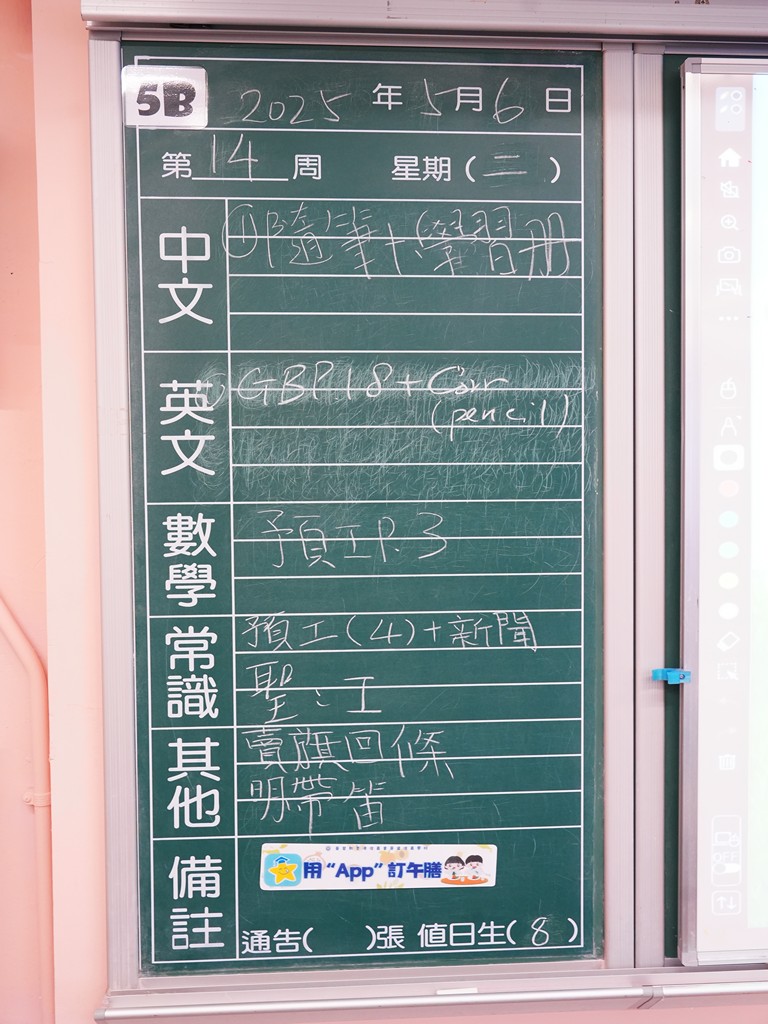 5B 2025 年 5 月 6 日
第 14 周 星期(二)
中文
①隨筆+學習冊
英文
① GBP18 + Corr
(pencil)
數學
預工P.3
常識
預工(4)+新聞
聖:工
其他
賣旗回條
明帶笛
備註
用“App”訂午膳
通告( )張 值日生(8)